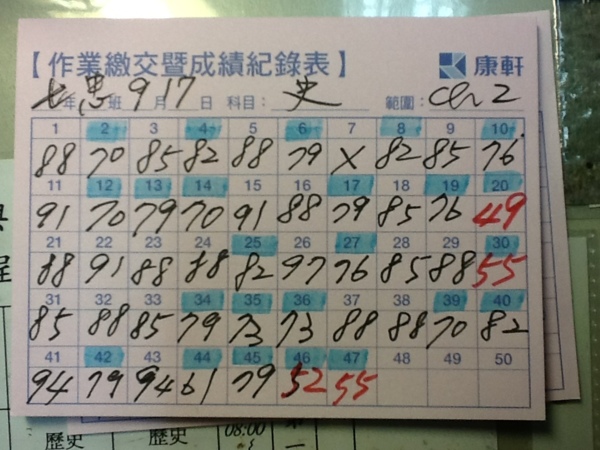 【作業繳交暨成績紀錄表】 康軒
七年忠班9月17日 科目：史 範圍：ch 2
1 2 3 4 5 6 7 8 9 10
88 70 85 82 88 79 X 82 85 76
11 12 13 14 15 16 17 18 19 20
91 70 79 70 91 88 79 85 76 49
21 22 23 24 25 26 27 28 29 30
88 91 88 88 82 97 76 85 88 55
31 32 33 34 35 36 37 38 39 40
85 88 85 79 73 73 88 88 70 82
41 42 43 44 45 46 47 48 49 50
94 79 94 61 79 52 55
歷史 歷史 08:00